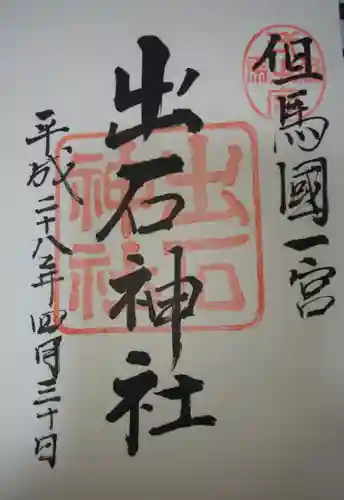 但馬國一宮
出石神社
平成二十八年四月三十日
出石
神社